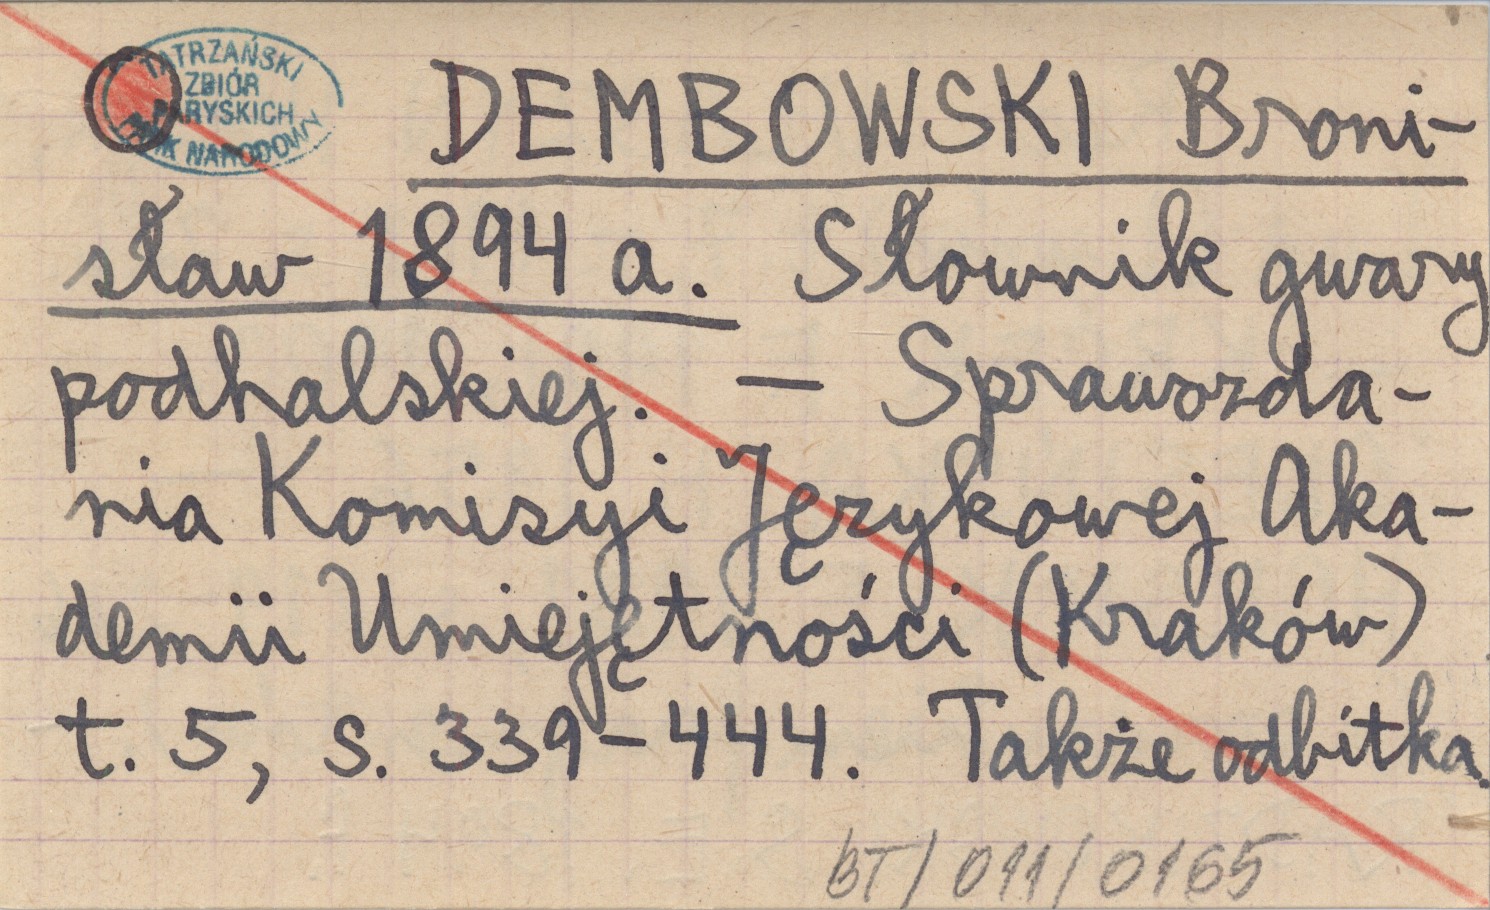 TATRZAŃSKI
ZBIÓR
PARYSKICH
NARODOWY
DEMBOWSKI Broni-
sław 1894 a. Słownik gwary
podhalskiej. — Sprawozda-
nia Komisyi Językowej Aka-
demii Umiejętności (Kraków)
t. 5, s. 339-444. Także odbitka.
BT/011/0165